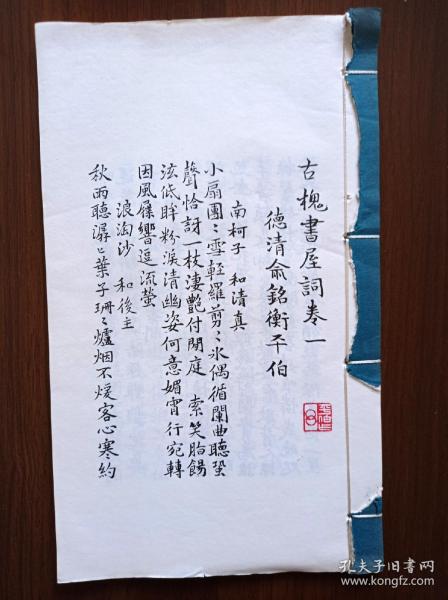 古槐書屋詞卷一
德清俞銘衡平伯
南柯子 和清真
小扇團〻雪輕羅剪〻冰偶循闌曲聽蛩
聲恰訝一枝淒艷付閒庭 索笑脂餳
泫低眸粉淚清幽姿何意媚宵行宛轉
因風屧響逗流螢
浪淘沙 和後主
秋雨聽潺〻葉子珊〻爐烟不煖客心寒約
孔夫子旧书网
www.kongfz.com